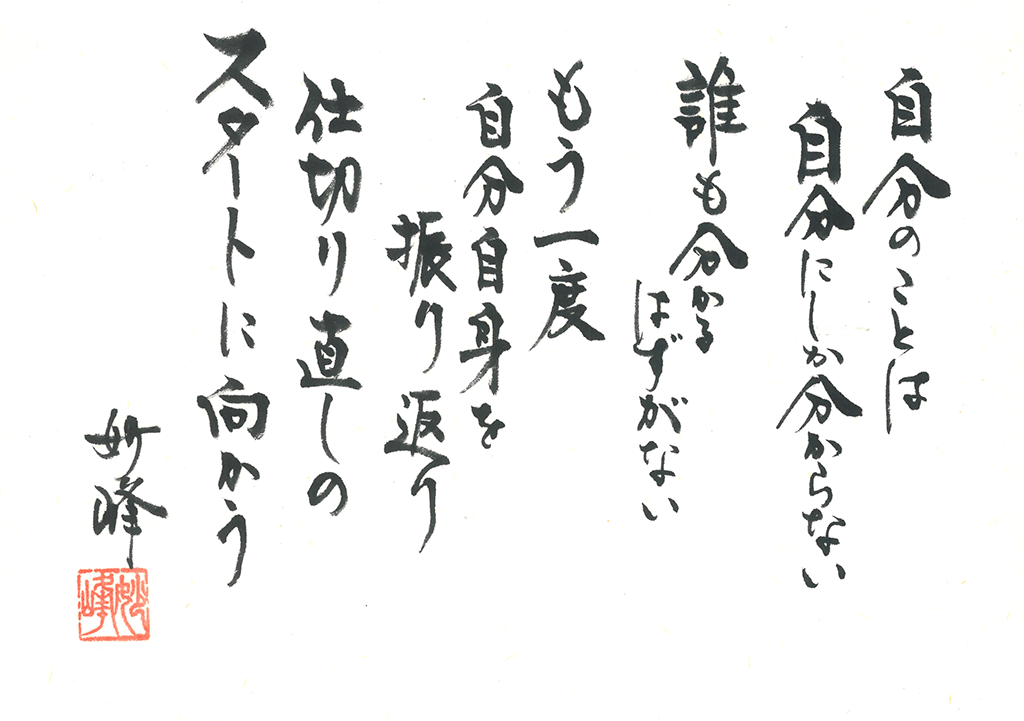 自分のことは
自分にしか分からない
誰も分かる
はずがない
もう一度
自分自身を
振り返り
仕切り直しの
スタートに向かう
妙峰
妙峰